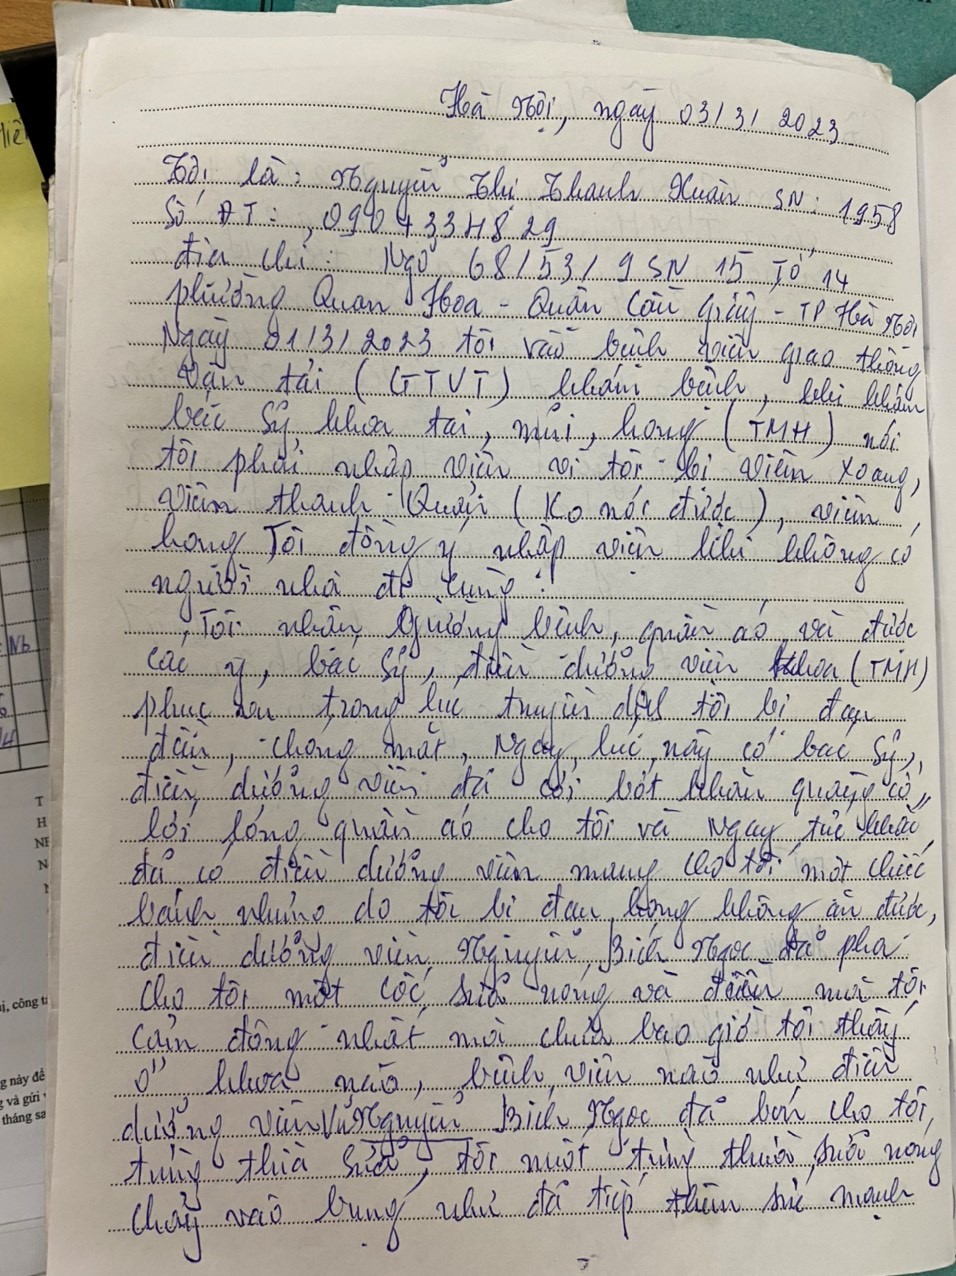 Hà Nội, ngày 03/3/2023
Tôi là: Nguyễn Thị Thanh Xuân SN: 1958
Số ĐT: 090433H829
địa chỉ: Ngõ 68/53/9 SN 15 Tổ 14
phường Quan Hoa - Quận Cầu Giấy - TP Hà Nội
Ngày 01/3/2023 tôi vào bệnh viện giao thông
vận tải (GTVT) khám bệnh, khi khám
bác sỹ khoa tai, mũi, họng (TMH) nói
tôi phải nhập viện vì tôi bị viêm xoang,
viêm thanh Quản (Ko nói được), viêm
họng Tôi đồng ý nhập viện khi không có
người nhà đi cùng.
Tôi nhận Giường bệnh, quần áo và được
các y, bác sỹ, điều dưỡng viên khoa (TMH)
phục vụ trong lúc truyền dịch tôi bị đau
đầu, chóng mặt, Ngay lúc này có bác sỹ,
điều dưỡng viên đã cởi bớt khăn quàng cổ,
lới lỏng quần áo cho tôi và Ngay tức khắc
đã có điều dưỡng viên mang cho tôi một chiếc
bánh nhưng do tôi bị đau họng không ăn được,
điều dưỡng viên Nguyễn Bích Ngọc đã pha
cho tôi một cốc sữa nóng và điều mà tôi
cảm động nhất mà chưa bao giờ tôi thấy
ở khoa nào, bệnh viện nào như điều
dưỡng viên Vũ Nguyễn Bích Ngọc đã bón cho tôi
từng thìa sữa, tôi nuốt từng thìa sữa nóng
chảy vào bụng như đã tiếp thêm sức mạnh
T
H
N
ị, công t
g này để
g và gửi
tháng sa